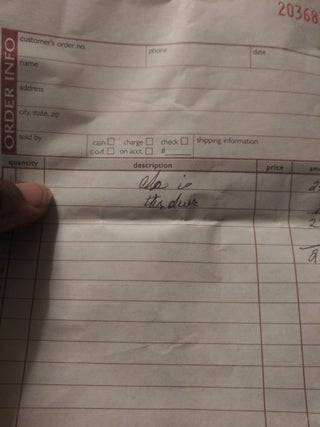 20368
ORDER INFO
customer's order no. phone date
name
address
city, state, zip
sold by cash charge check shipping information
c.o.d. on acct. #
quantity description price am
is
this
2